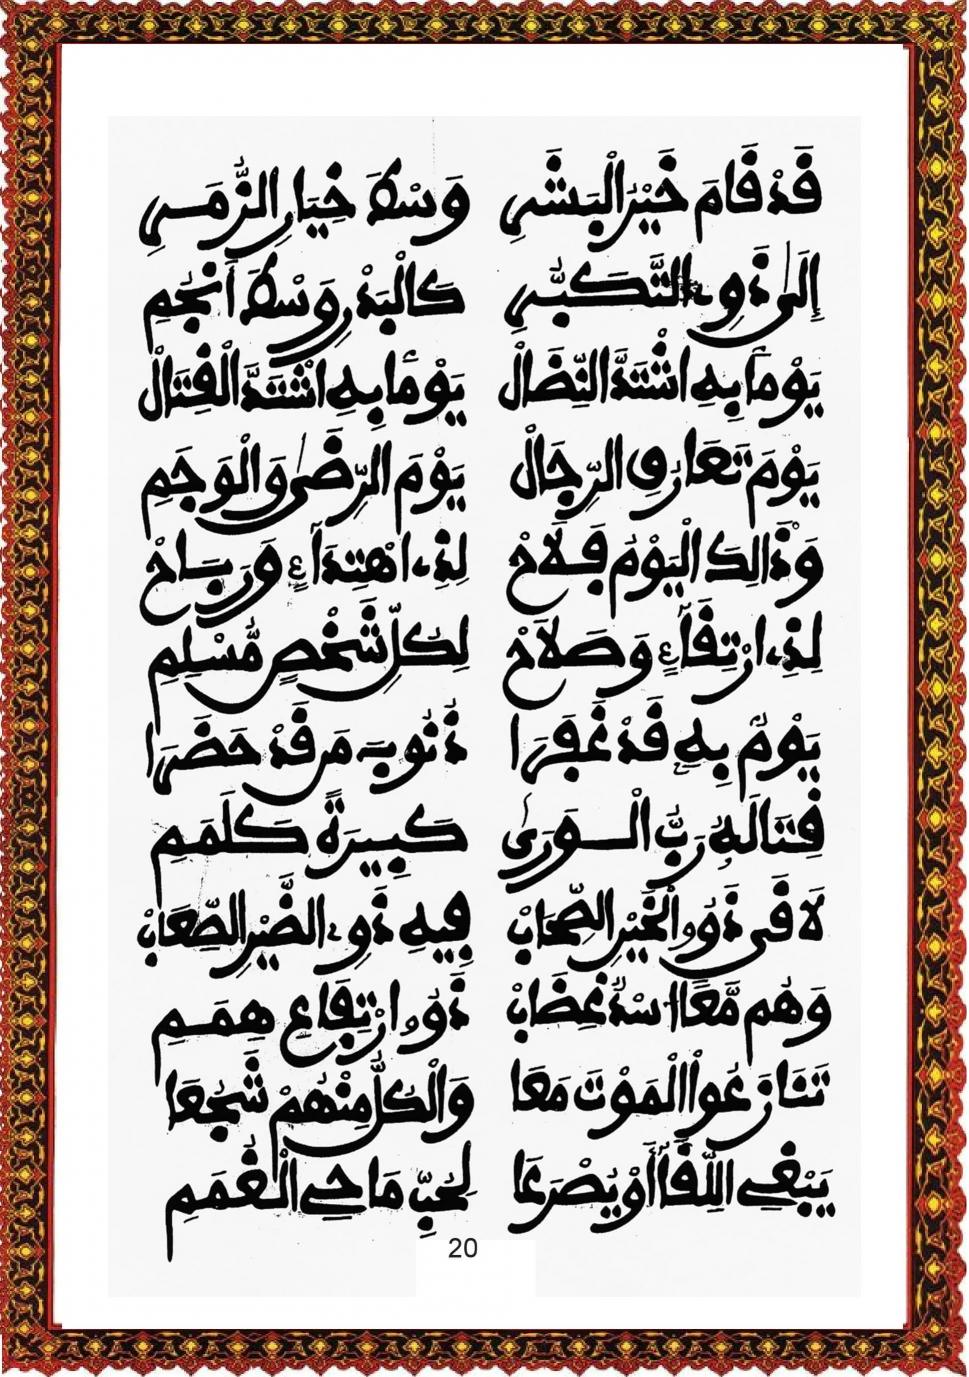 قَدْ قَامَ خَيْرُ الْبَشَرِ وَسْطَ خِيَارِ الزُّمَرِ
إِلَى ذَوِي التَّكَبُّرِ كَالْبَدْرِ وَسْطَ أَنْجُمِ
يَوْمًا بِهِ اشْتَدَّ النِّضَالْ يَوْمًا بِهِ اشْتَدَّ الْقِتَالْ
يَوْمَ تَعَارُفِ الرِّجَالْ يَوْمَ الرِّضَى وَالْوَجَمِ
وَذَالِكَ الْيَوْمُ فَلَاحْ لِذِي اهْتِدَاءٍ وَرَبَاحْ
لِذِي ارْتِقَاءٍ وَصَلَاحْ لِكُلِّ شَخْصٍ مُّسْلِمِ
يَوْمٌ بِهِ قَدْ غَفَرَا ذُنُوبَ مَن قَدْ حَضَرَا
قِتَالَهُ رَبُّ الْوَرَى كَبِيرَةً كَلَمَمِ
لَاقَى ذَوُو الْخَيْرِ الصِّحَابْ فِيهِ ذَوِي الضَّيْرِ الصِّعَابْ
وَهُم مَّعًا أُسْدٌ غِضَابْ ذَوُو ارْتِقَاعِ هِمَمِ
تَنَازَعُوا الْمَوْتَ مَعَا وَالْكُلُّ مِنْهُمْ شَجُعَا
يَبْغِي اللِّقَا أَوْ يُصْرَعَا لِحُبِّ مَاحِي الْغُمَمِ
20